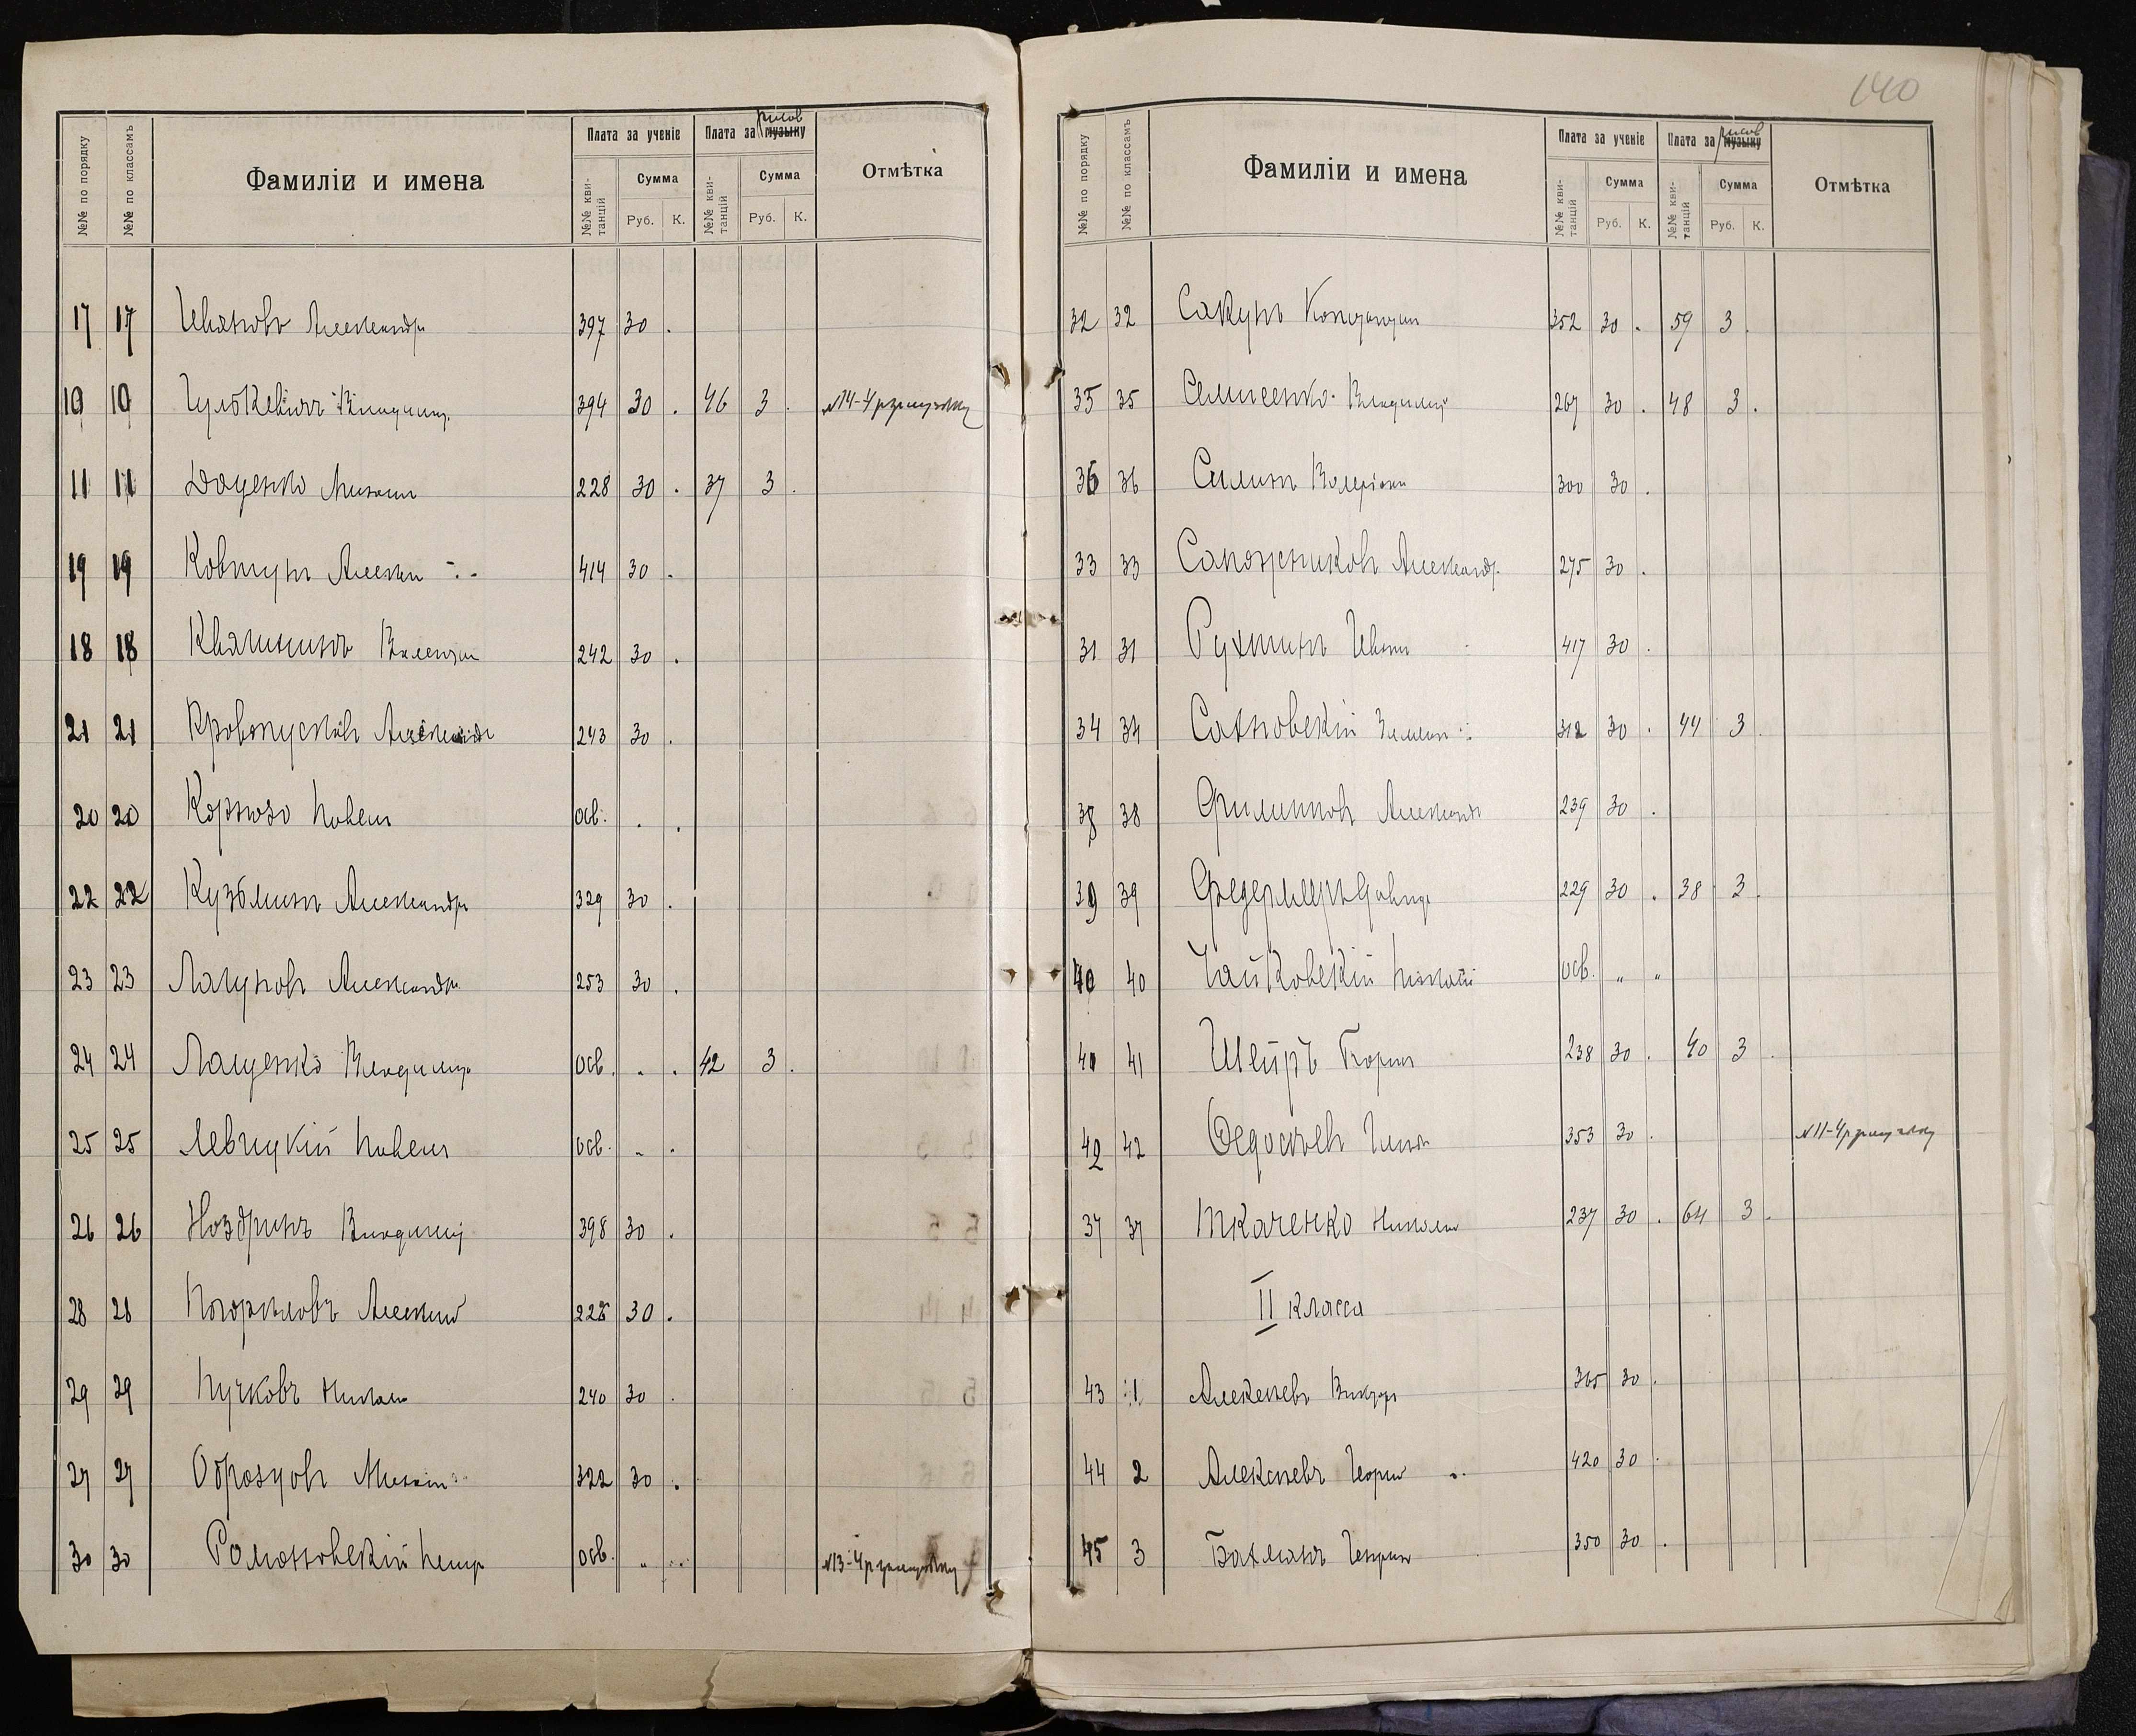 №№ по порядку №№ по классамъ Фамиліи и имена Плата за ученіе Плата за музыку рисов Отмѣтка
№№ квитанцій Сумма №№ квитанцій Сумма
Руб. К. Руб. К.
17 17 Ивановъ Александръ 397 30 .
10 10 Гулькевичъ Владиміръ 394 30 . 46 3 . №14-4р
11 11 Доценко Михаилъ 228 30 . 37 3 .
19 19 Ковтунъ 414 30 .
18 18 Квяткинъ Валентинъ 242 30 .
21 21 Кровопусковъ Александръ 243 30 .
20 20 Павелъ Осв. . .
22 22 Кузьминъ Александръ 329 30 .
23 23 Лагуновъ Александръ 253 30 .
24 24 Лащенко Владиміръ Осв. . . 42 3 .
25 25 Левицкій Павелъ Осв. . .
26 26 Ноздринъ Владиміръ 398 30 .
28 28 Алексѣй 30 .
29 29 Пучковъ Николай 240 30 .
27 27 Образцовъ Михаилъ 322 30 .
30 30 Романовскій Петръ Осв. „ .. №13-4р
140
№№ по порядку №№ по классамъ Фамиліи и имена Плата за ученіе Плата за музыку рисов Отмѣтка
№№ квитанцій Сумма №№ квитанцій Сумма
Руб. К. Руб. К.
32 32 Сакунъ Константинъ 352 30 . 59 3 .
35 35 Владиміръ 267 30 . 48 3 .
36 36 Силинъ Валеріанъ 300 30 .
33 33 Сапожниковъ Александръ 275 30 .
31 31 Рухтинъ Иванъ 417 30 .
34 34 Сахновскій 312 30 . 44 3 .
38 38 Филипповъ Александръ 239 30 .
39 39 Федермееръ Давидъ 229 30 . 38 3 .
40 40 Чайковскій Николай Осв. „ „
41 41 Шейръ Борисъ 238 30 . 40 3 .
42 42 Ѳедосѣевъ 353 30 . №11-4р
37 37 Ткаченко Николай 237 30 . 64 3 .
II класса
43 1 Алексѣевъ Викторъ 365 30 .
44 2 Алексѣевъ Георгій 420 30 .
45 3 Бахманъ Генрихъ 350 30 .